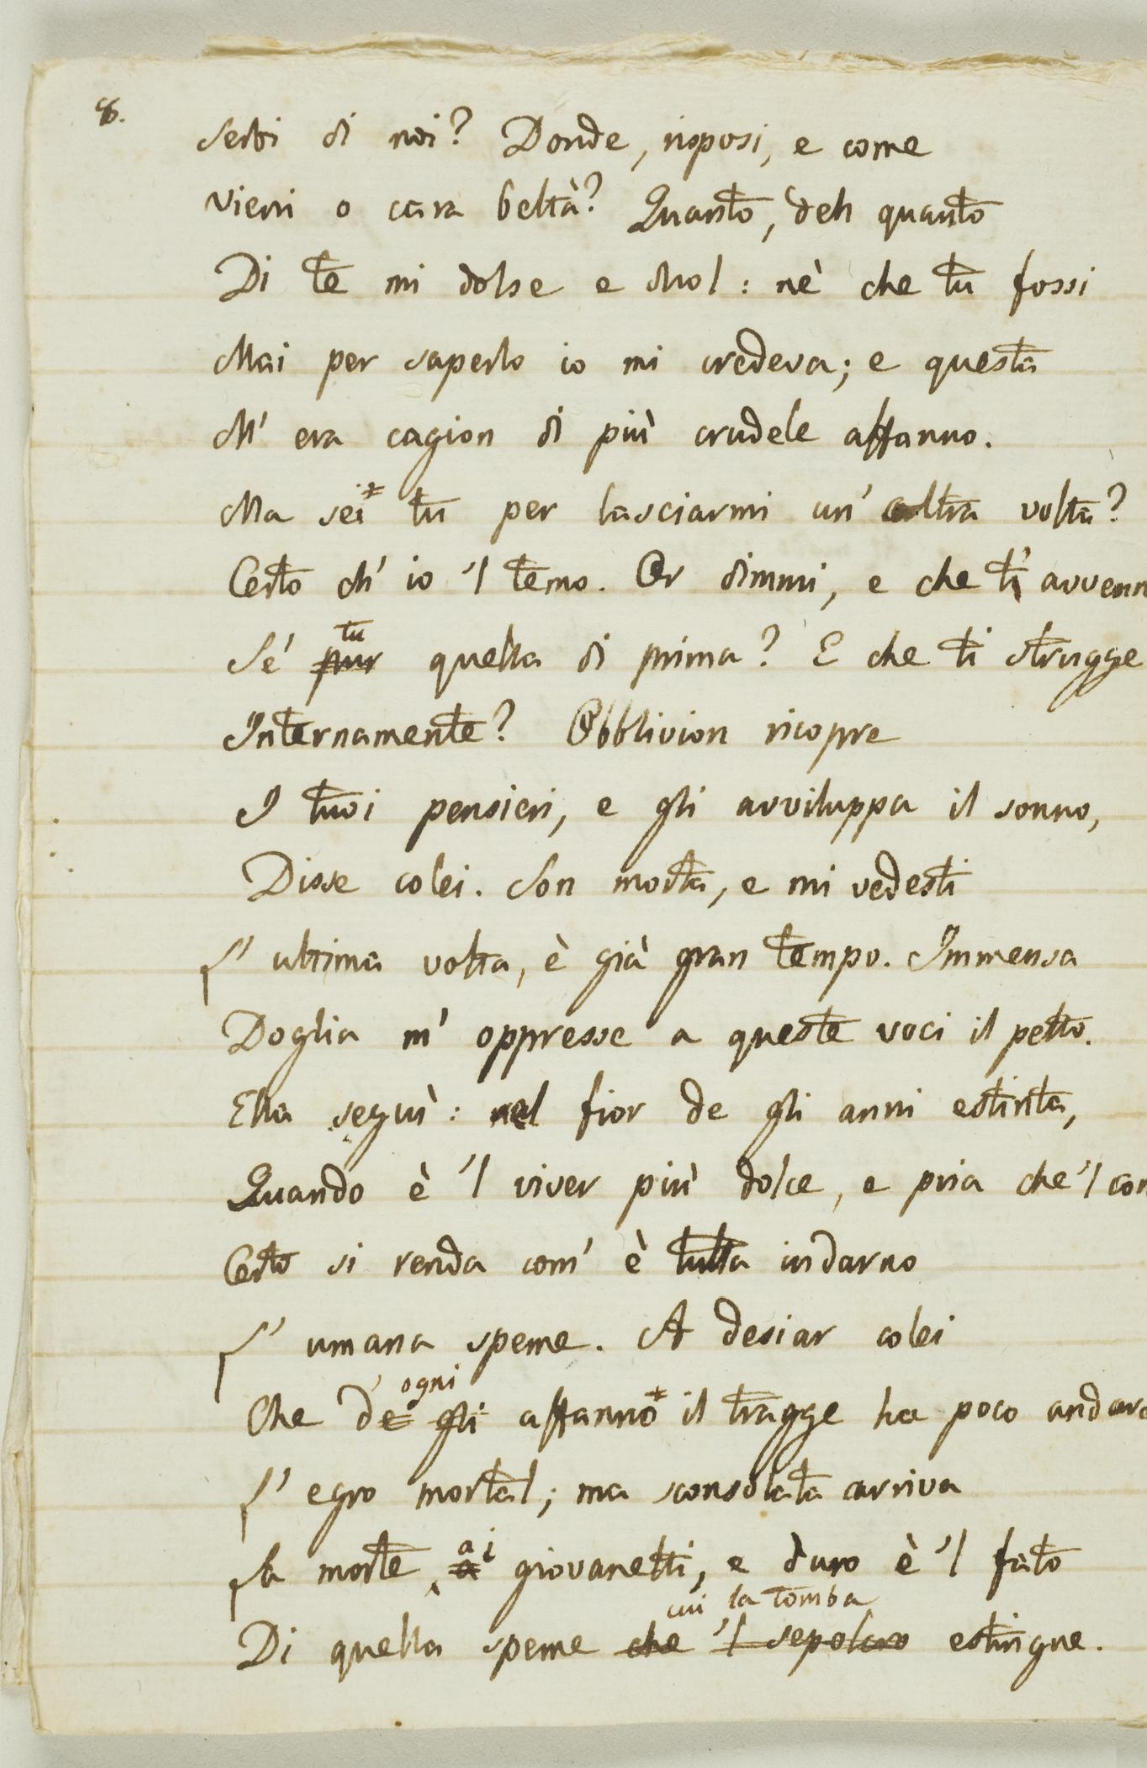 8.
Serbi di noi? Donde, risposi, e come
Vieni o cara beltà? Quanto, deh quanto
Di te mi dolse e duol: nè che tu fossi
Mai per saperlo io mi credeva; e questa
M' era cagion di più crudele affanno.
Ma sei tu per lasciarmi un' altra volta?
Certo ch' io 'l temo. Or dimmi, e che ti avvenn
Se' pur tu quella di prima? E che ti strugge
Internamente? Obblivion ricopre
I tuoi pensieri, e gli avviluppa il sonno,
Disse colei. Son morta, e mi vedesti
L' ultima volta, è già gran tempo. Immensa
Doglia m' oppresse a queste voci il petto.
Ella seguì: nel fior de gli anni estinta,
Quando è 'l viver più dolce, e pria che 'l cor
Certo si renda com' è tutta indarno
L' umana speme. A desiar colei
Che de gli ogni affanno il tragge ha poco andare
L' egro mortal; ma sconsolata arriva
La morte ai giovanetti, e duro è 'l fato
Di quella speme che 'l sepolcro cui la tomba estingue.